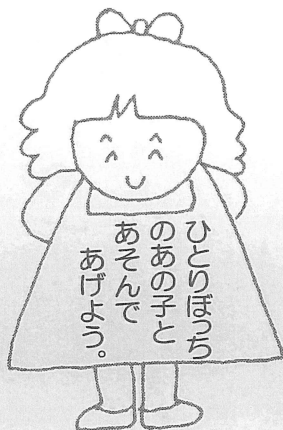 ひとりぼっち
のあの子と
あそんで
あげよう。